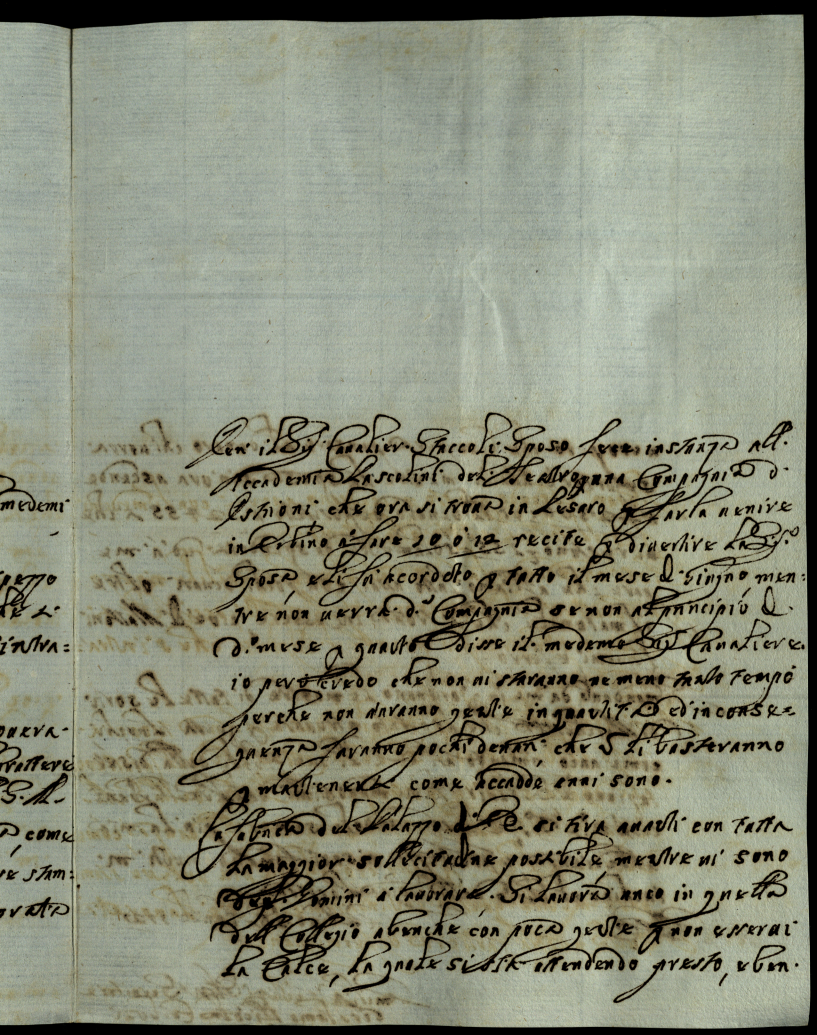 medemi
pezzo
instra=
overa-
come
e stam:
Ieri il Sig.r Cavalier Staccoli Sposo fece instanza all'
Accademia Pascolini del Teatro p una Compagnia d'
Istrioni che ora si trova in Pesaro p farla venire
in Urbino a fare 10 o 12 recite p divertire la Sig.ra
Sposa e li fù acordato p tutto il mese di Giugno men-
tre non verrà d.a Compagnia se non al principio di
d.o mese p quanto disse il medemo Sig.r Cavaliere.
io però credo che non vi staranno ne meno tanto tempo
perche non avranno gente in quantità ed in conse=
guenza faranno pochi denari che li basteranno
p mantenersi come accadde anni sono.
La fabrica del Palazzo si tira avanti con tutta
la maggior sollecitudine possibile mentre vi sono
Uomini a lavorare. Si lavora anco in quella
dell Collegio abenche con poca gente p non esservi
la Calce, la quale si stà attendendo presto, e ben-